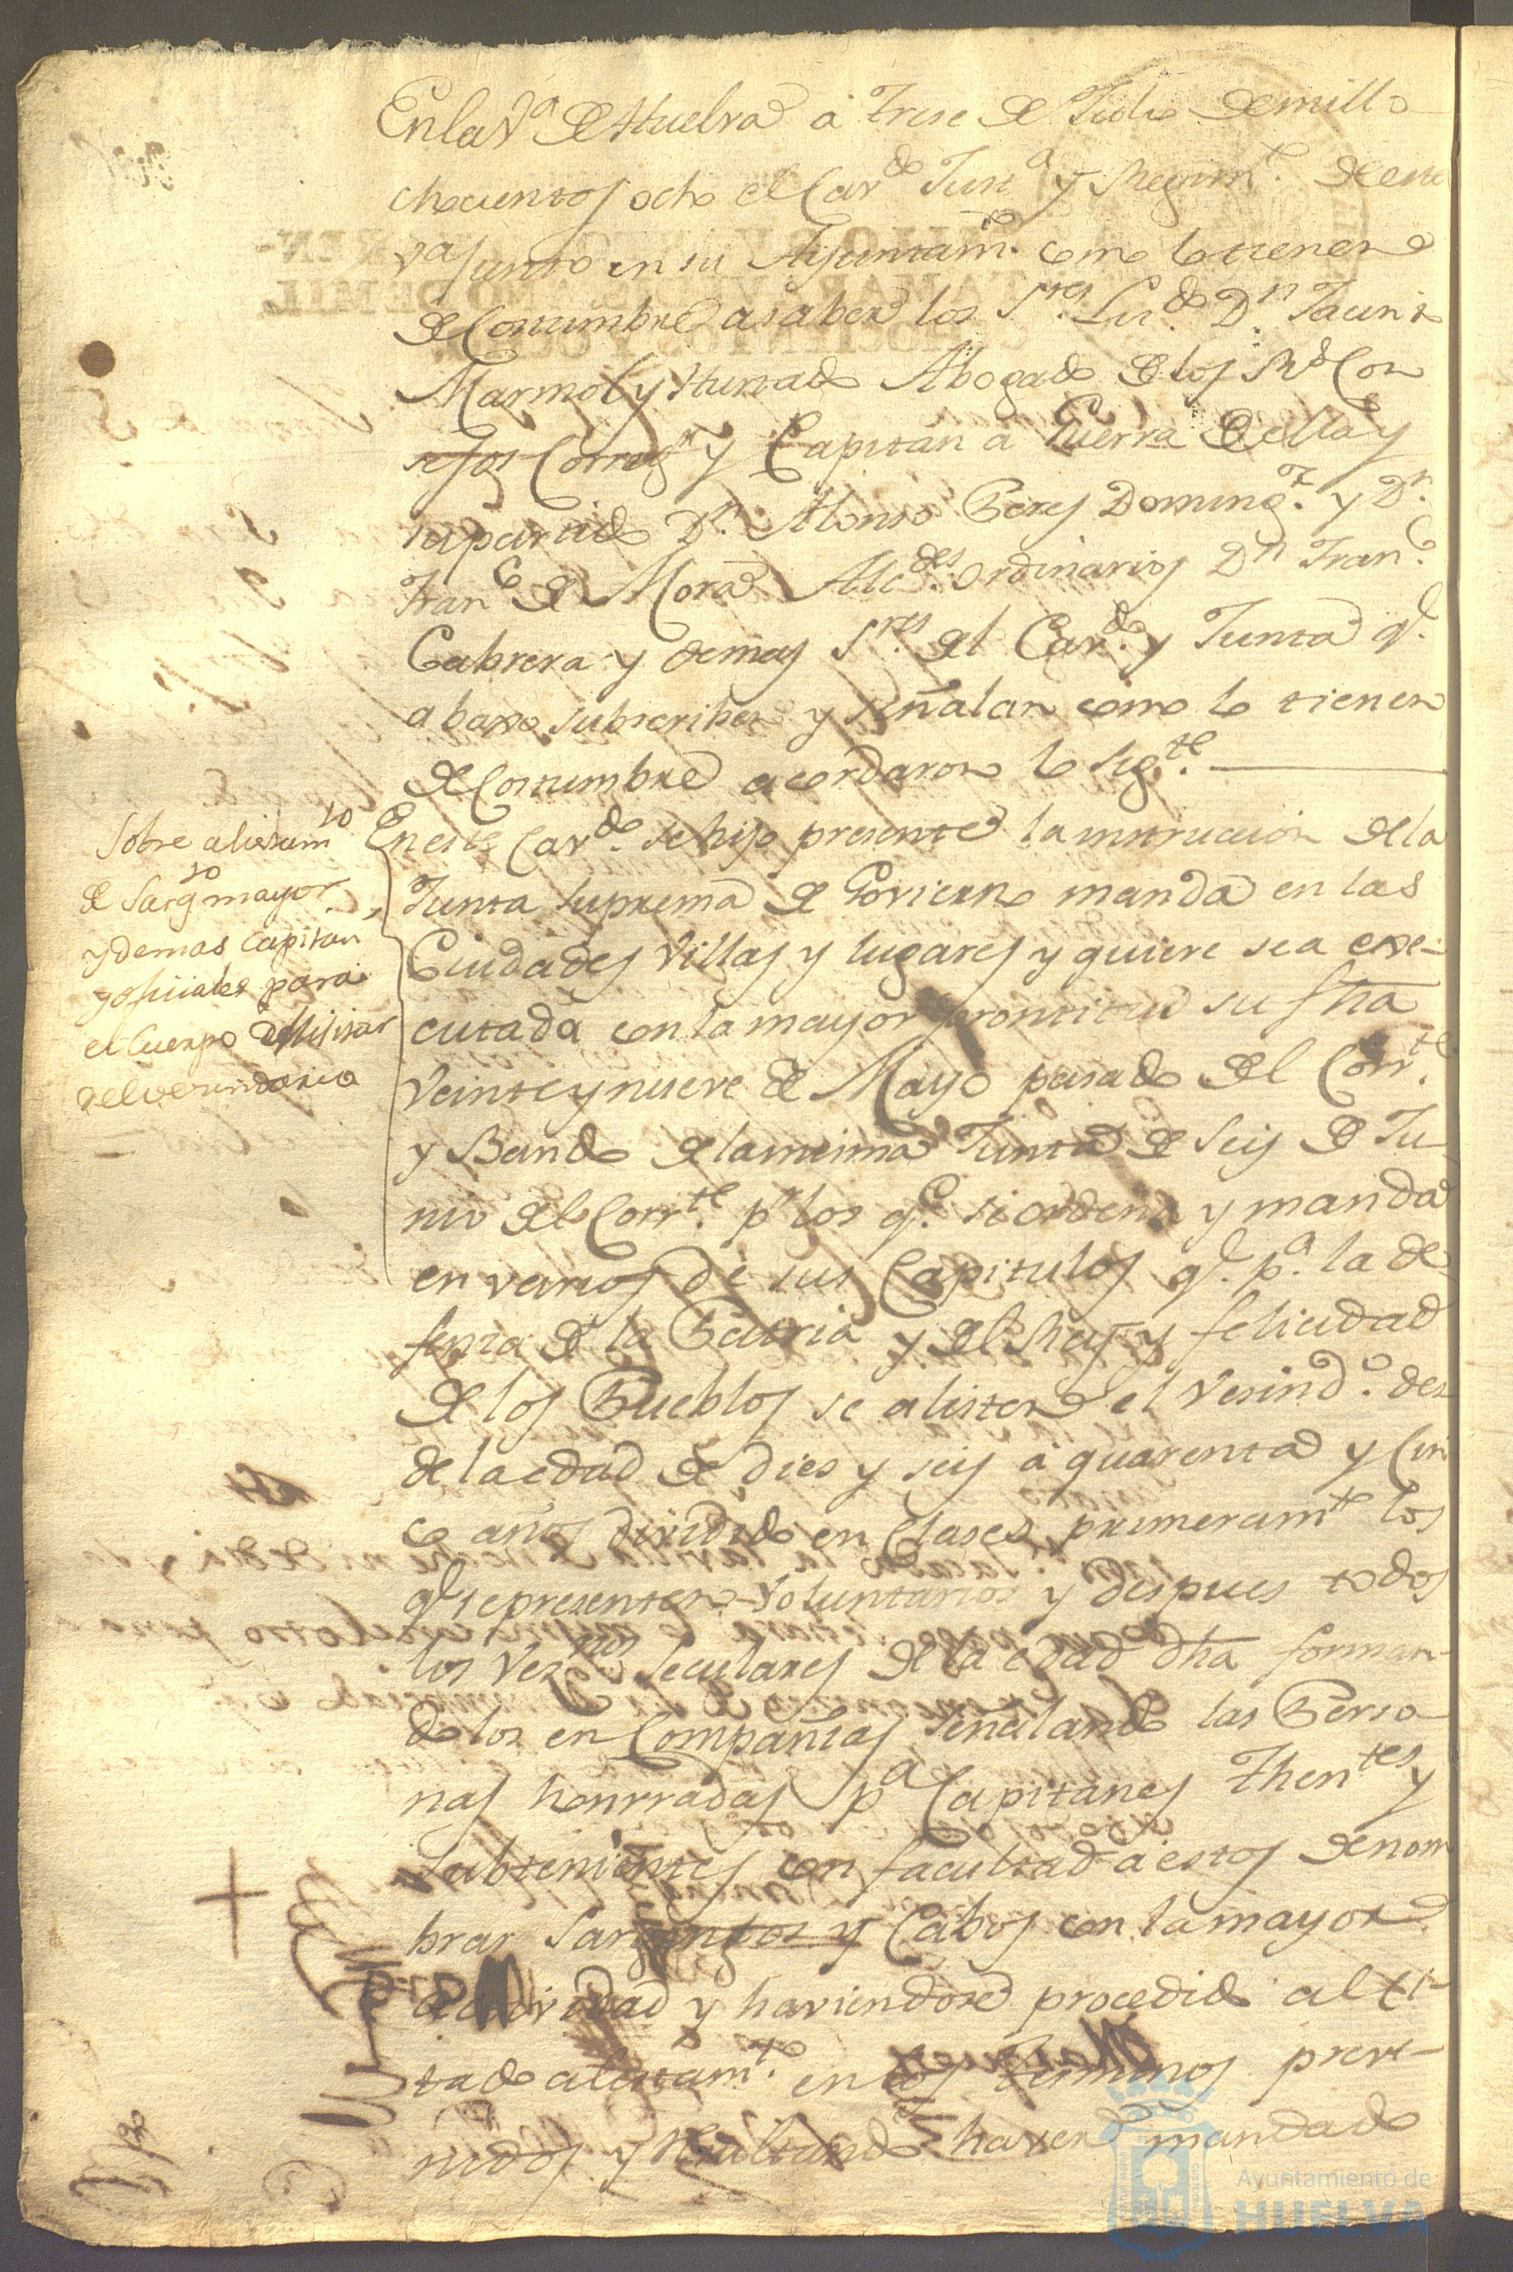 En la Vª de Huelva á trese de Julio de mill o
chocientos ocho el Cavdo. Justª y Regimto. de esta
Vª junto en su Ayuntamto. como lo tienen
de Costumbre asaber los Sres. Licdo. Dn. Jacinto
Marmol y Hurtado Abogado de los Rs. Con
sejos Corregr. y Capitan a Guerra de ella y
su partido Dn. Alonso Peres Domingz. y Dn.
Franco. de Mora Alcdes. ordinarios Dn Franco.
Cabrera y demas Sres. del Cavdo. y Junta qe.
abaxo subscriben y señalan como lo tienen
de Costumbre acordaron lo sigte.
Sobre alistamto
de Sargto mayor
y demas Capitan
y oficiales para
el Cuerpo Militar
del vesindario
En este Cavdo. se hiso presente la instruccion de la
Junta Suprema de Govierno manda en las
Ciudades Villas y lugares y quiere sea exe-
cutada con la mayor prontitud su fha
Veinte y nueve de Mayo pasado del Corrte.
y Bando de la mesma Junta de Seis de Ju-
nio del Corrte. pr los qe. se ordena y manda
en varios de sus Capitulos qe. pª. la de
fensa de la Patria y del Rey y felicidad
de los Pueblos se alisten el vesindo. des
de la edad de dies y seis á quarenta y Cin
co años dividido en Clases, primeramte los
qe se presenten Voluntarios y despues todos
los Veznos Seculares de la edad dha forman-
dolos en Compañias señalando las Perso
nas honrradas pª Capitanes Thentes y
Subtenientes con facultad á estos de nom
brar Sargentos y Cabos con la mayor
actividad y haviendose procedido al ci-
tado alistamto. en los terminos preve-
nidos y resultando haver mandado
Ayuntamiento de
HUELVA